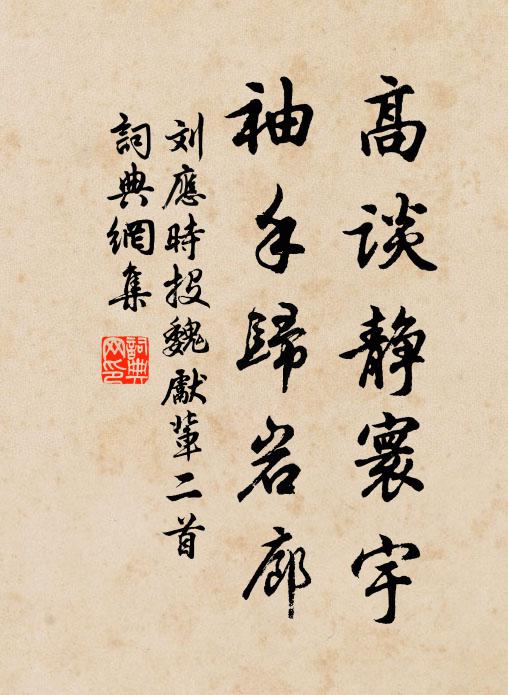 高談静寰宇
袖手歸岩廊
刘應時投魏獻輩二首
詞典網集
詞典网印